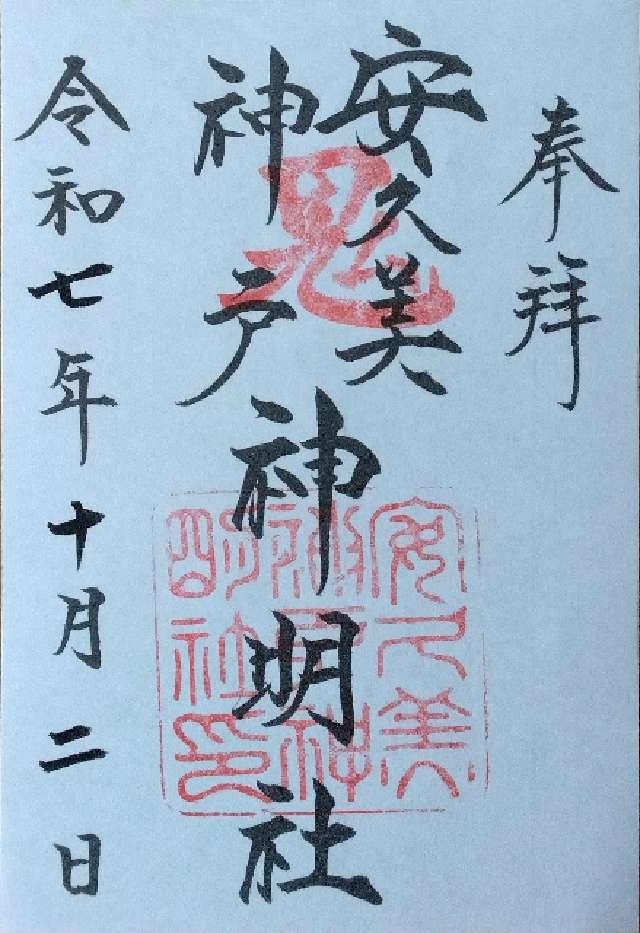 奉拝
安久美
神戸
神明社
令和七年十月二日
鬼
安久美
神戸神
明社印